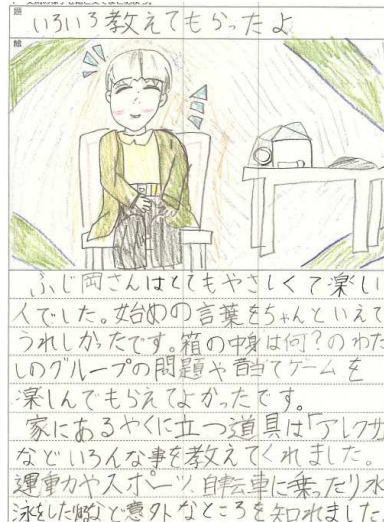 題 いろいろ教えてもらったよ
絵
ふじ岡さんはとてもやさしくて楽しい
人でした。始めの言葉をちゃんといえて
うれしかったです。箱の中身は何?のわた
しのグループの問題や音当てゲームを
楽しんでもらえてよかったです。
家にあるやくに立つ道具は「アレクサ
などいろんな事を教えてくれました。
運動やスポーツ、自転車に乗ったり水
泳をしたりなど意外なところを知れました